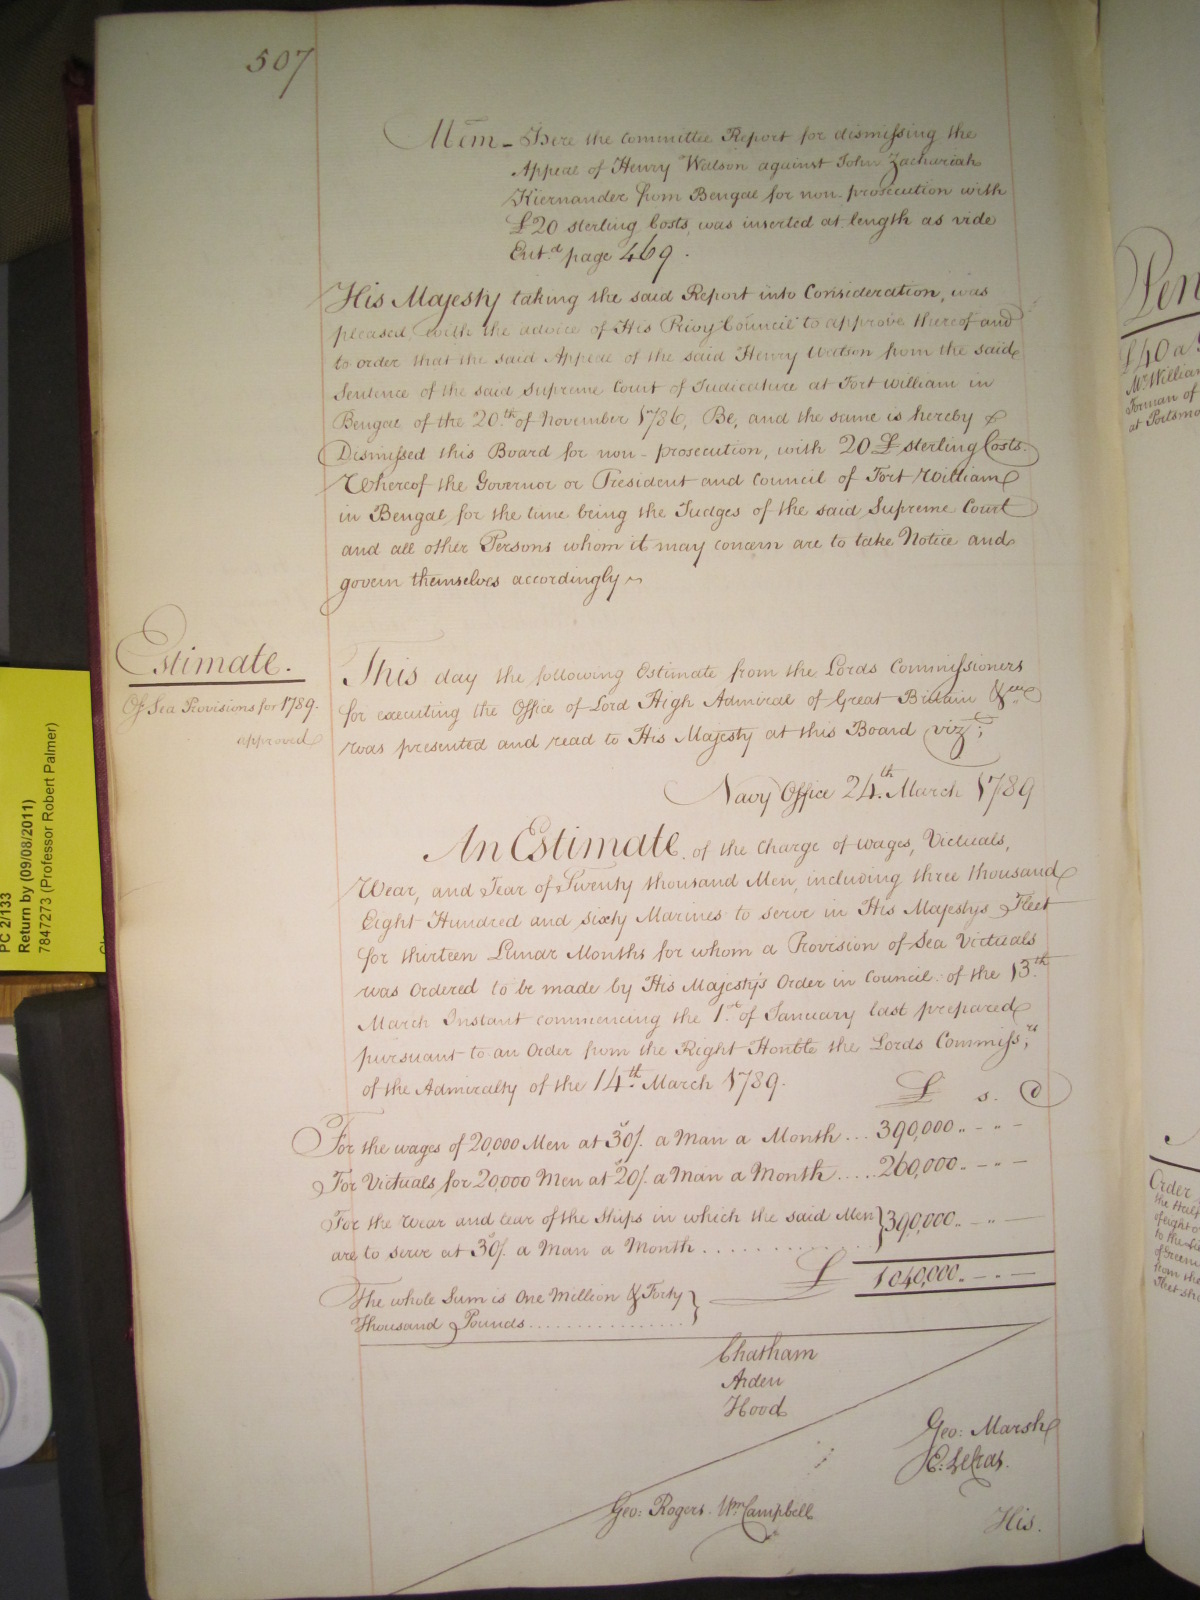 507
Mem - Here the Committee Report for dismissing the
Appeal of Henry Watson against John Zachariah
Kiernander from Bengal for non prosecution with
£20 sterling Costs, was inserted at length as vide
Ent.d page 469.
His Majesty taking the said Report into Consideration, was
pleased, with the advice of His Privy Council to approve thereof and
to order that the said Appeal of the said Henry Watson from the said
Sentence of the said Supreme Court of Judicature at Fort William in
Bengal of the 20.th of November 1786, Be, and the same is hereby
Dismissed this Board for non-prosecution, with 20 £ sterling Costs.
Whereof the Governor or President and Council of Fort William
in Bengal for the time being the Judges of the said Supreme Court
and all other Persons whom it may concern are to take Notice and
govern themselves accordingly
Estimate.
Of Sea Provisions for 1789.
approved
This day the following Estimate from the Lords Commissioners
for executing the Office of Lord High Admiral of Great Britain &ca
was presented and read to His Majesty at this Board viz.t
Navy Office 24.th March 1789
An Estimate of the Charge of Wages, Victuals,
Wear, and Tear of Twenty thousand Men, including three thousand
Eight Hundred and sixty Marines to serve in His Majestys Fleet
for thirteen Lunar Months for whom a Provision of Sea Victuals
was Ordered to be made by His Majesty's Order in Council of the 13.th
March Instant commencing the 1.st of January last prepared
pursuant to an Order from the Right Honble the Lords Commiss.rs
of the Admiralty of the 14.th March 1789.
£ s. d
For the wages of 20,000 Men at 30/. a Man a Month ... 390,000.. - .. -
For Victuals for 20,000 Men at 20/. a Man a Month ..... 260,000.. - .. -
For the Wear and tear of the Ships in which the said Men } 390,000.. - .. -
are to serve at 30/. a Man a Month ............
£ 1040,000.. - .. -
The whole Sum is One Million & Forty }
Thousand Pounds ................
Chatham
Arden
Hood
Geo: Marsh
E: LeCras.
Geo: Rogers. Wm Campbell
His.
PC 2/133
Return by (09/08/2011)
7847273 (Professor Robert Palmer)
Pen
£40 a
Mr. William
Forman of
at Portsmo
Order
the Half
of eight
to the
of Greenw
from the